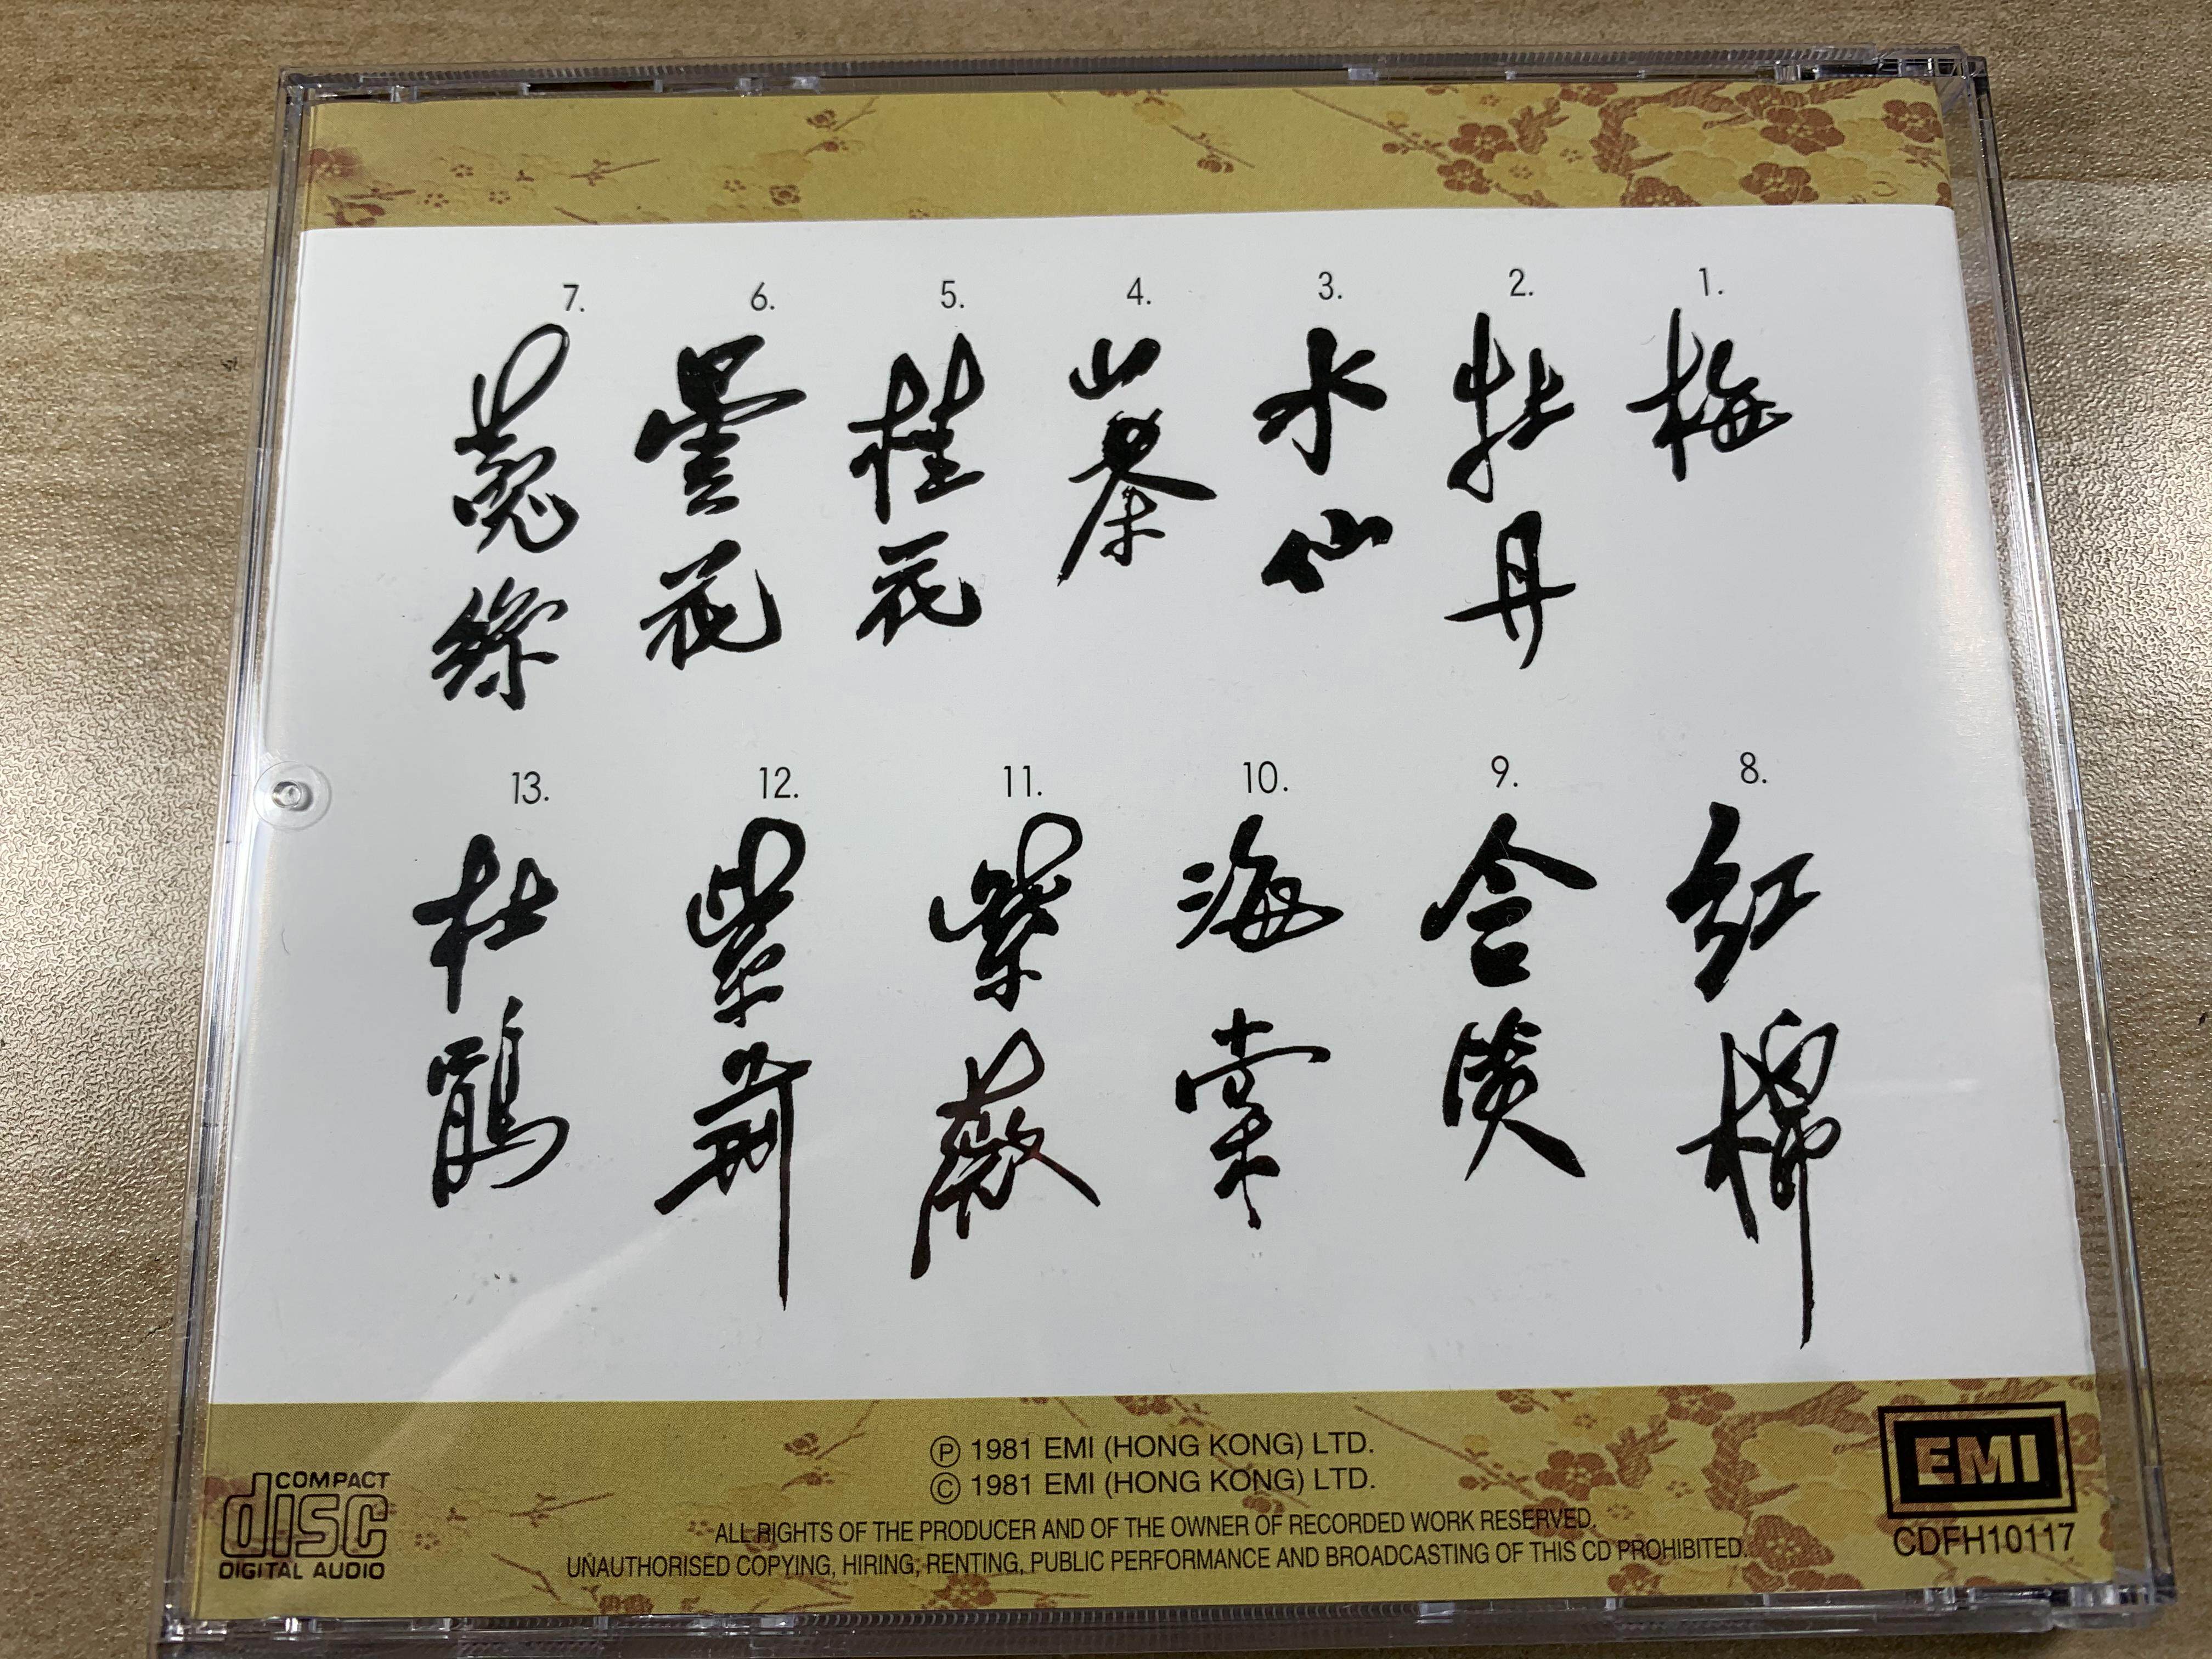 1.
梅
2.
牡丹
3.
水仙
4.
山茶
5.
桂花
6.
曇花
7.
菟絲
8.
紅棉
9.
含笑
10.
海棠
11.
紫薇
12.
紫荊
13.
杜鵑
Ⓟ 1981 EMI (HONG KONG) LTD.
© 1981 EMI (HONG KONG) LTD.
ALL RIGHTS OF THE PRODUCER AND OF THE OWNER OF RECORDED WORK RESERVED.
UNAUTHORISED COPYING, HIRING, RENTING, PUBLIC PERFORMANCE AND BROADCASTING OF THIS CD PROHIBITED.
COMPACT
disc
DIGITAL AUDIO
EMI
CDFH10117